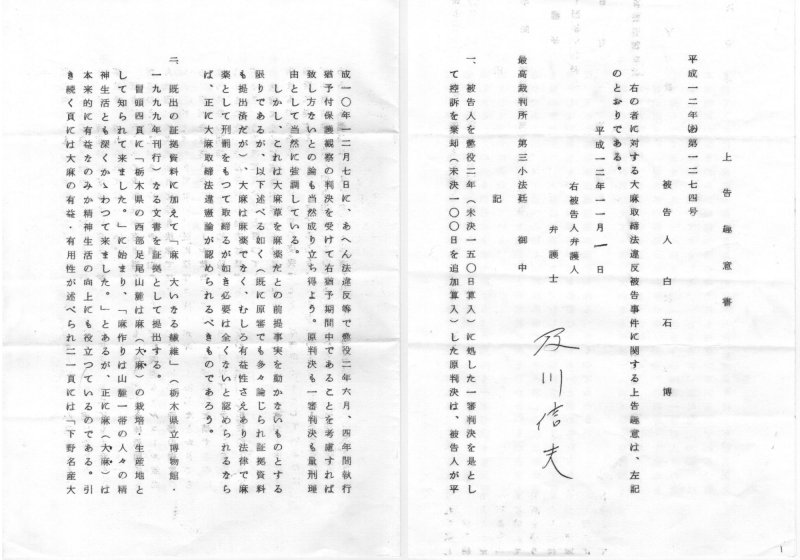 上告趣意書
平成一二年(あ)第一二七四号
被告人 白石 博
右の者に対する大麻取締法違反被告事件に関する上告趣意は、左記
のとおりである。
平成一二年一一月一日
右被告人弁護人
弁護士 及川信夫
最高裁判所 第三小法廷 御中
記
一、被告人を懲役二年(未決一五〇日算入)に処した一審判決を是とし
て控訴を棄却(未決一〇〇日を追加算入)した原判決は、被告人が平
1
成一〇年一二月七日に、あへん法違反等で懲役二年六月、四年間執行
猶予付保護観察の判決を受けて右猶予期間中であることを考慮すれば
致し方ないとの論も当然成り立ち得よう。原判決も一審判決も量刑理
由として当然に強調している。
しかし、これは大麻草を麻薬だとの前提事実を動かないものとする
限りであるが、以下述べる如く(既に原審でも多々論じられ証拠資料
も提出済だが)、大麻は麻薬でなく、むしろ有益性さえあり法律で麻
薬として刑罰をもつて取締るが如き必要は全くないと認められるなら
ば、正に大麻取締法違憲論が認められるべきものであろう。
二、既出の証拠資料に加えて「麻 大いなる繊維」(栃木県立博物館・
一九九九年刊行)なる文書を証拠として提出する。
冒頭四頁に「栃木県の西部足尾山麓は麻(大麻)の栽培・生産地と
して知られて来ました。」に始まり、「麻作りは山麓一帯の人々の精
神生活とも深くかゝわつて来ました。」とあるが、正に麻(大麻)は
本来的に有益なのみか精神生活の向上にも役立つているのである。引
き続く頁には大麻の有益・有用性が述べられ二一頁には「下野名産大